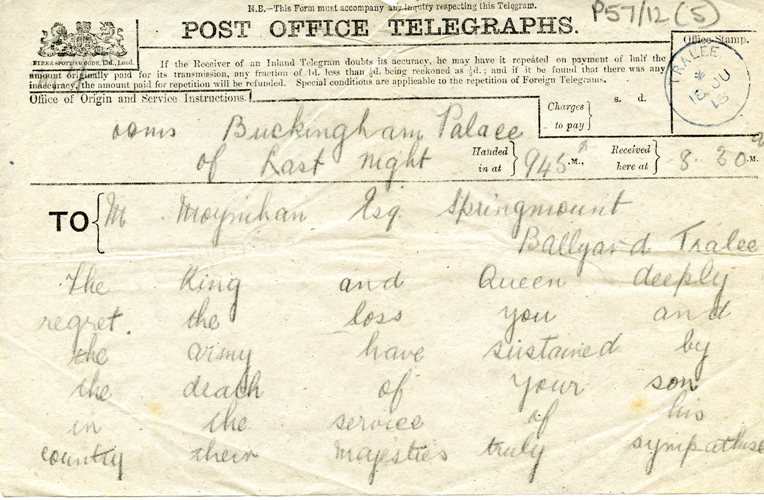 N.B.—This Form must accompany any inquiry respecting this Telegram.
P57/12(5)
POST OFFICE TELEGRAPHS.
Office Stamp.
If the Receiver of an Inland Telegram doubts its accuracy, he may have it repeated on payment of half the
amount originally paid for its transmission, any fraction of 1d. less than ½d. being reckoned as ½d.; and if it be found that there was any
inaccuracy, the amount paid for repetition will be refunded. Special conditions are applicable to the repetition of Foreign Telegrams.
TRALEE
JU
15
Office of Origin and Service Instructions.
Charges to pay
s. d.
OHMS Buckingham Palace
of Last night
Handed in at
945 M.,
Received here at
8.30 M.
TO
M Moynihan Esq Springmount
Ballyard Tralee
The King and Queen deeply
regret. the loss you and
the army have sustained by
the death of your son
in the service of his
country their Majesties truly sympathise